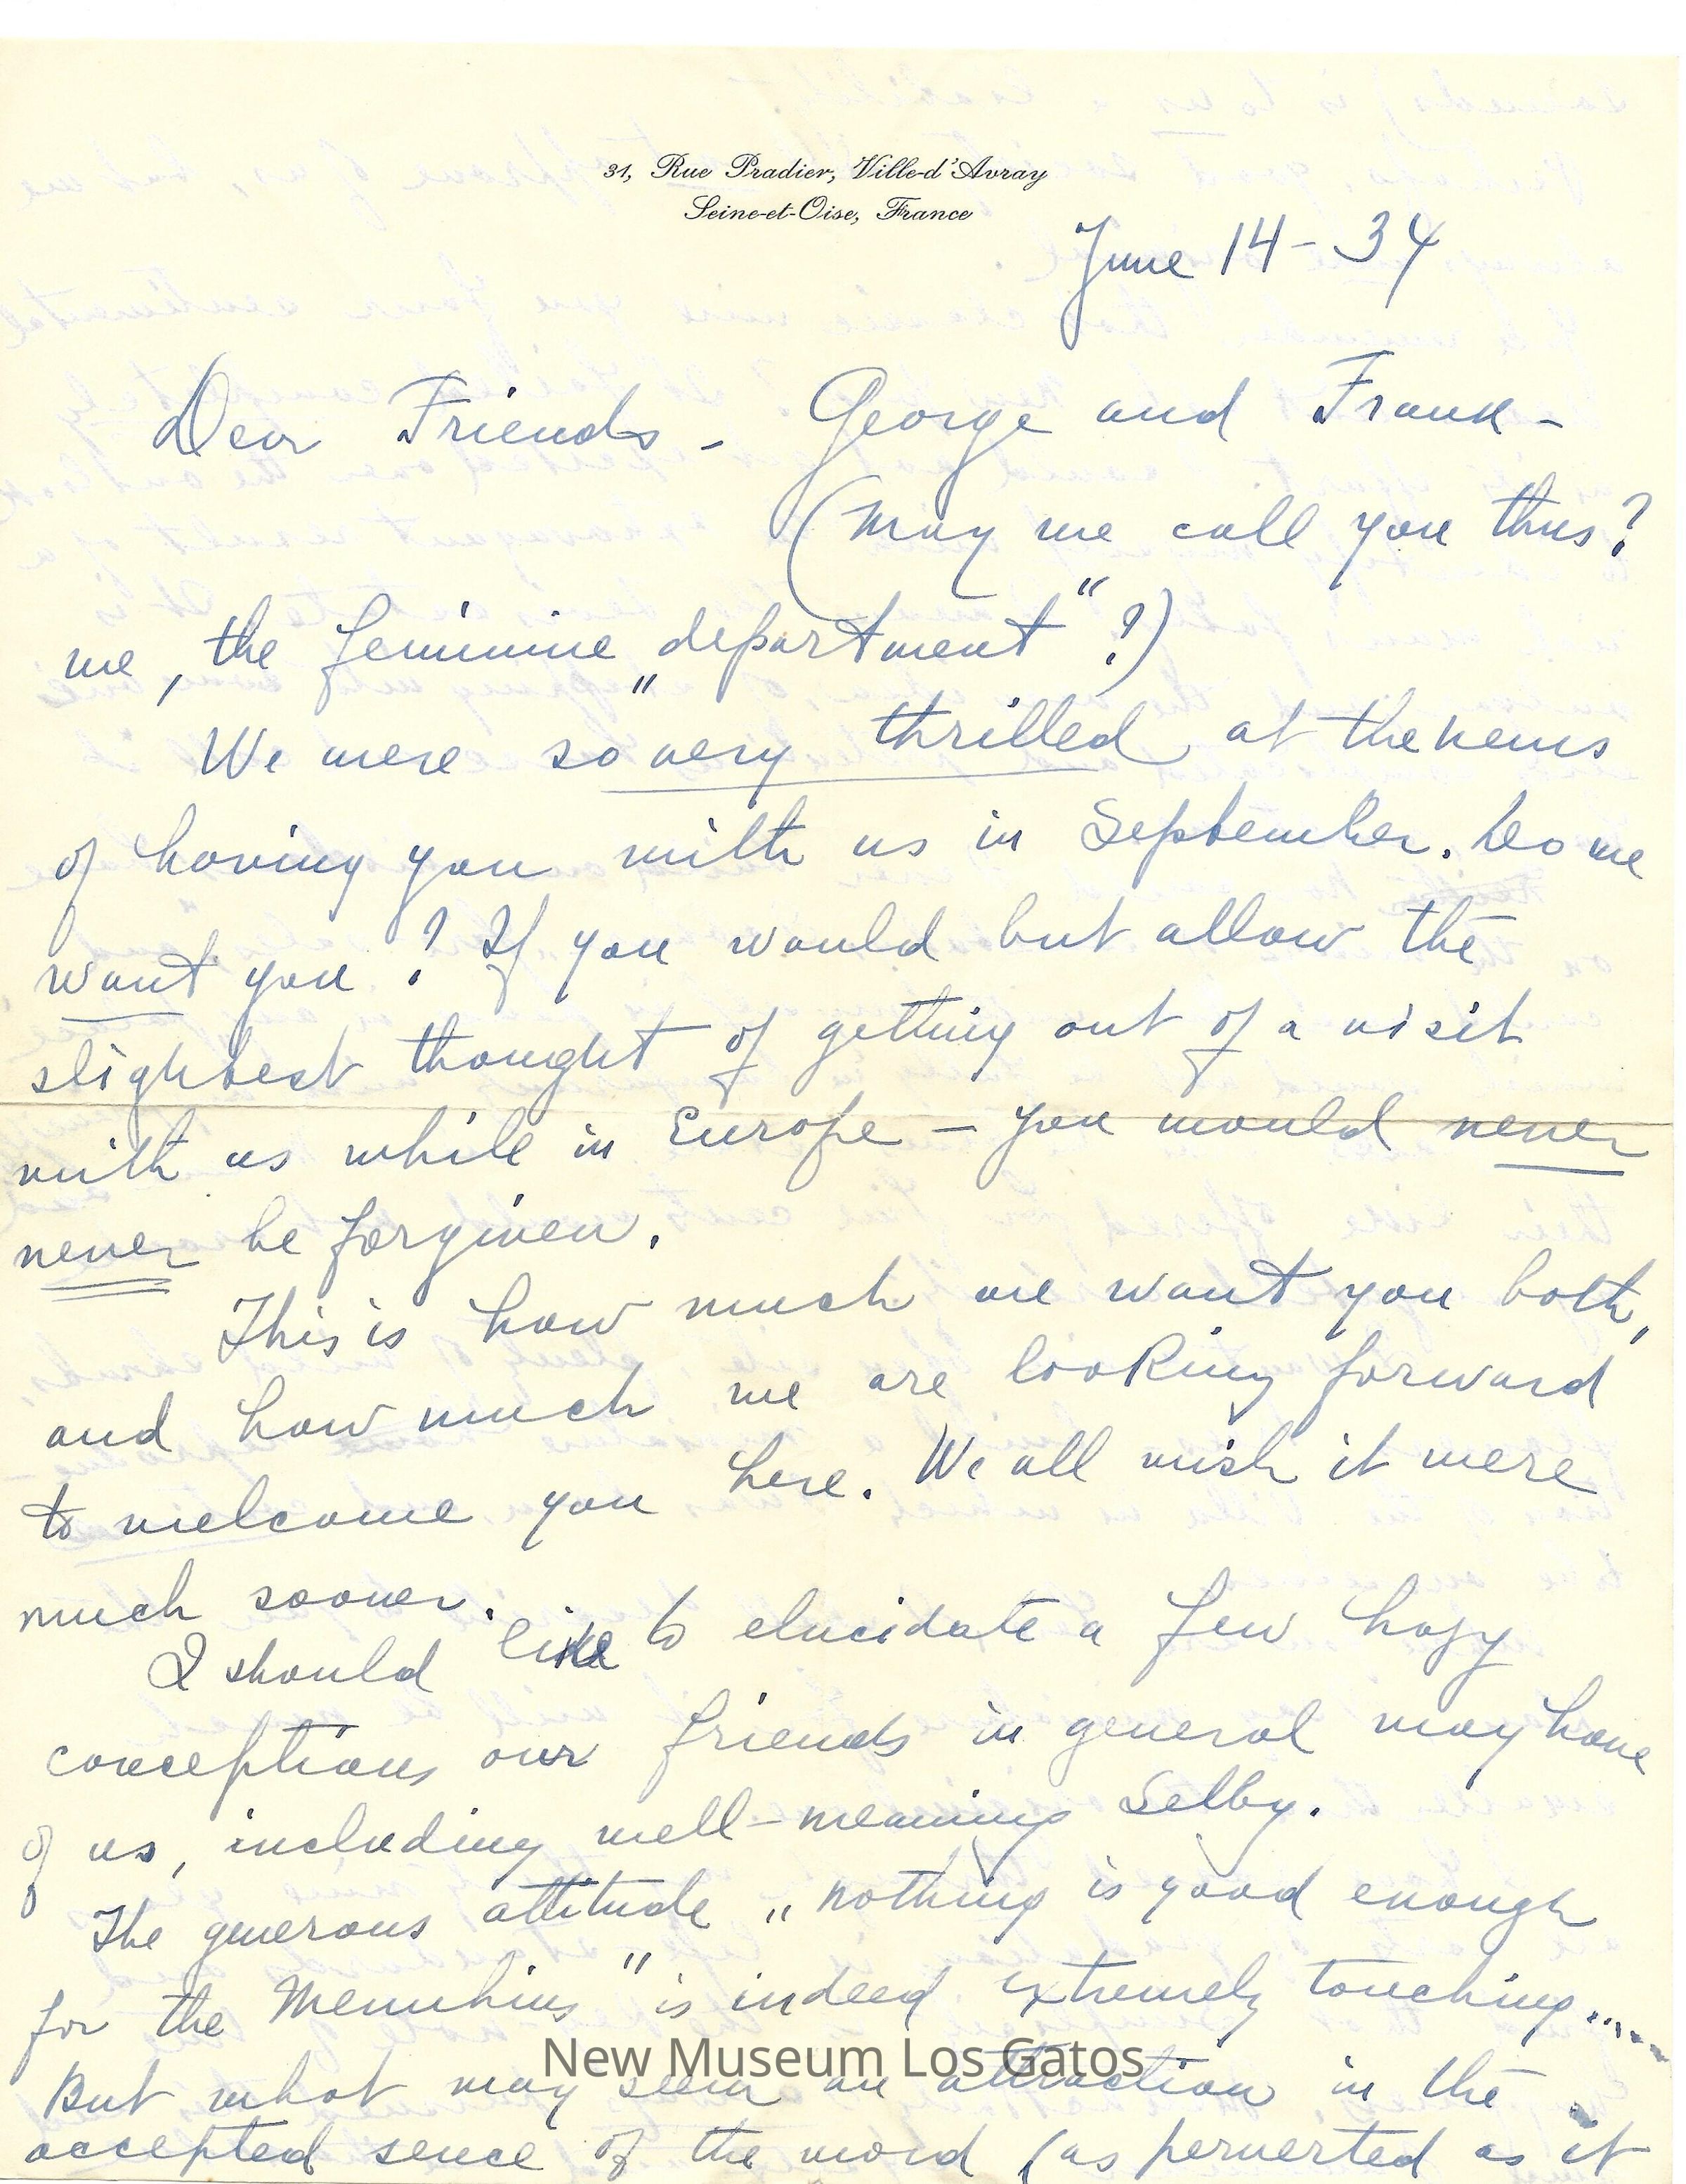 31, Rue Pradier, Ville-d'Avray
Seine-et-Oise, France
June 14 - 34
Dear Friends - George and Frank -
(May we call you thus?
we, the feminine „department“?)
We were so very thrilled at the news
of having you with us in September. Do we
want you? If you would but allow the
slightest thought of getting out of a visit
with us while in Europe – you would never
never be forgiven.
This is how much we want you both,
and how much we are looking forward
to welcome you here. We all wish it were
much sooner.
I should like to elucidate a few hazy
conceptions our friends in general may have
of us, including well-meaning Selby.
The generous attitude „nothing is good enough
for the Menuhins“ is indeed extremely touching.....
But what may seem an attraction in the
accepted sence of the word (as perverted as it
New Museum Los Gatos